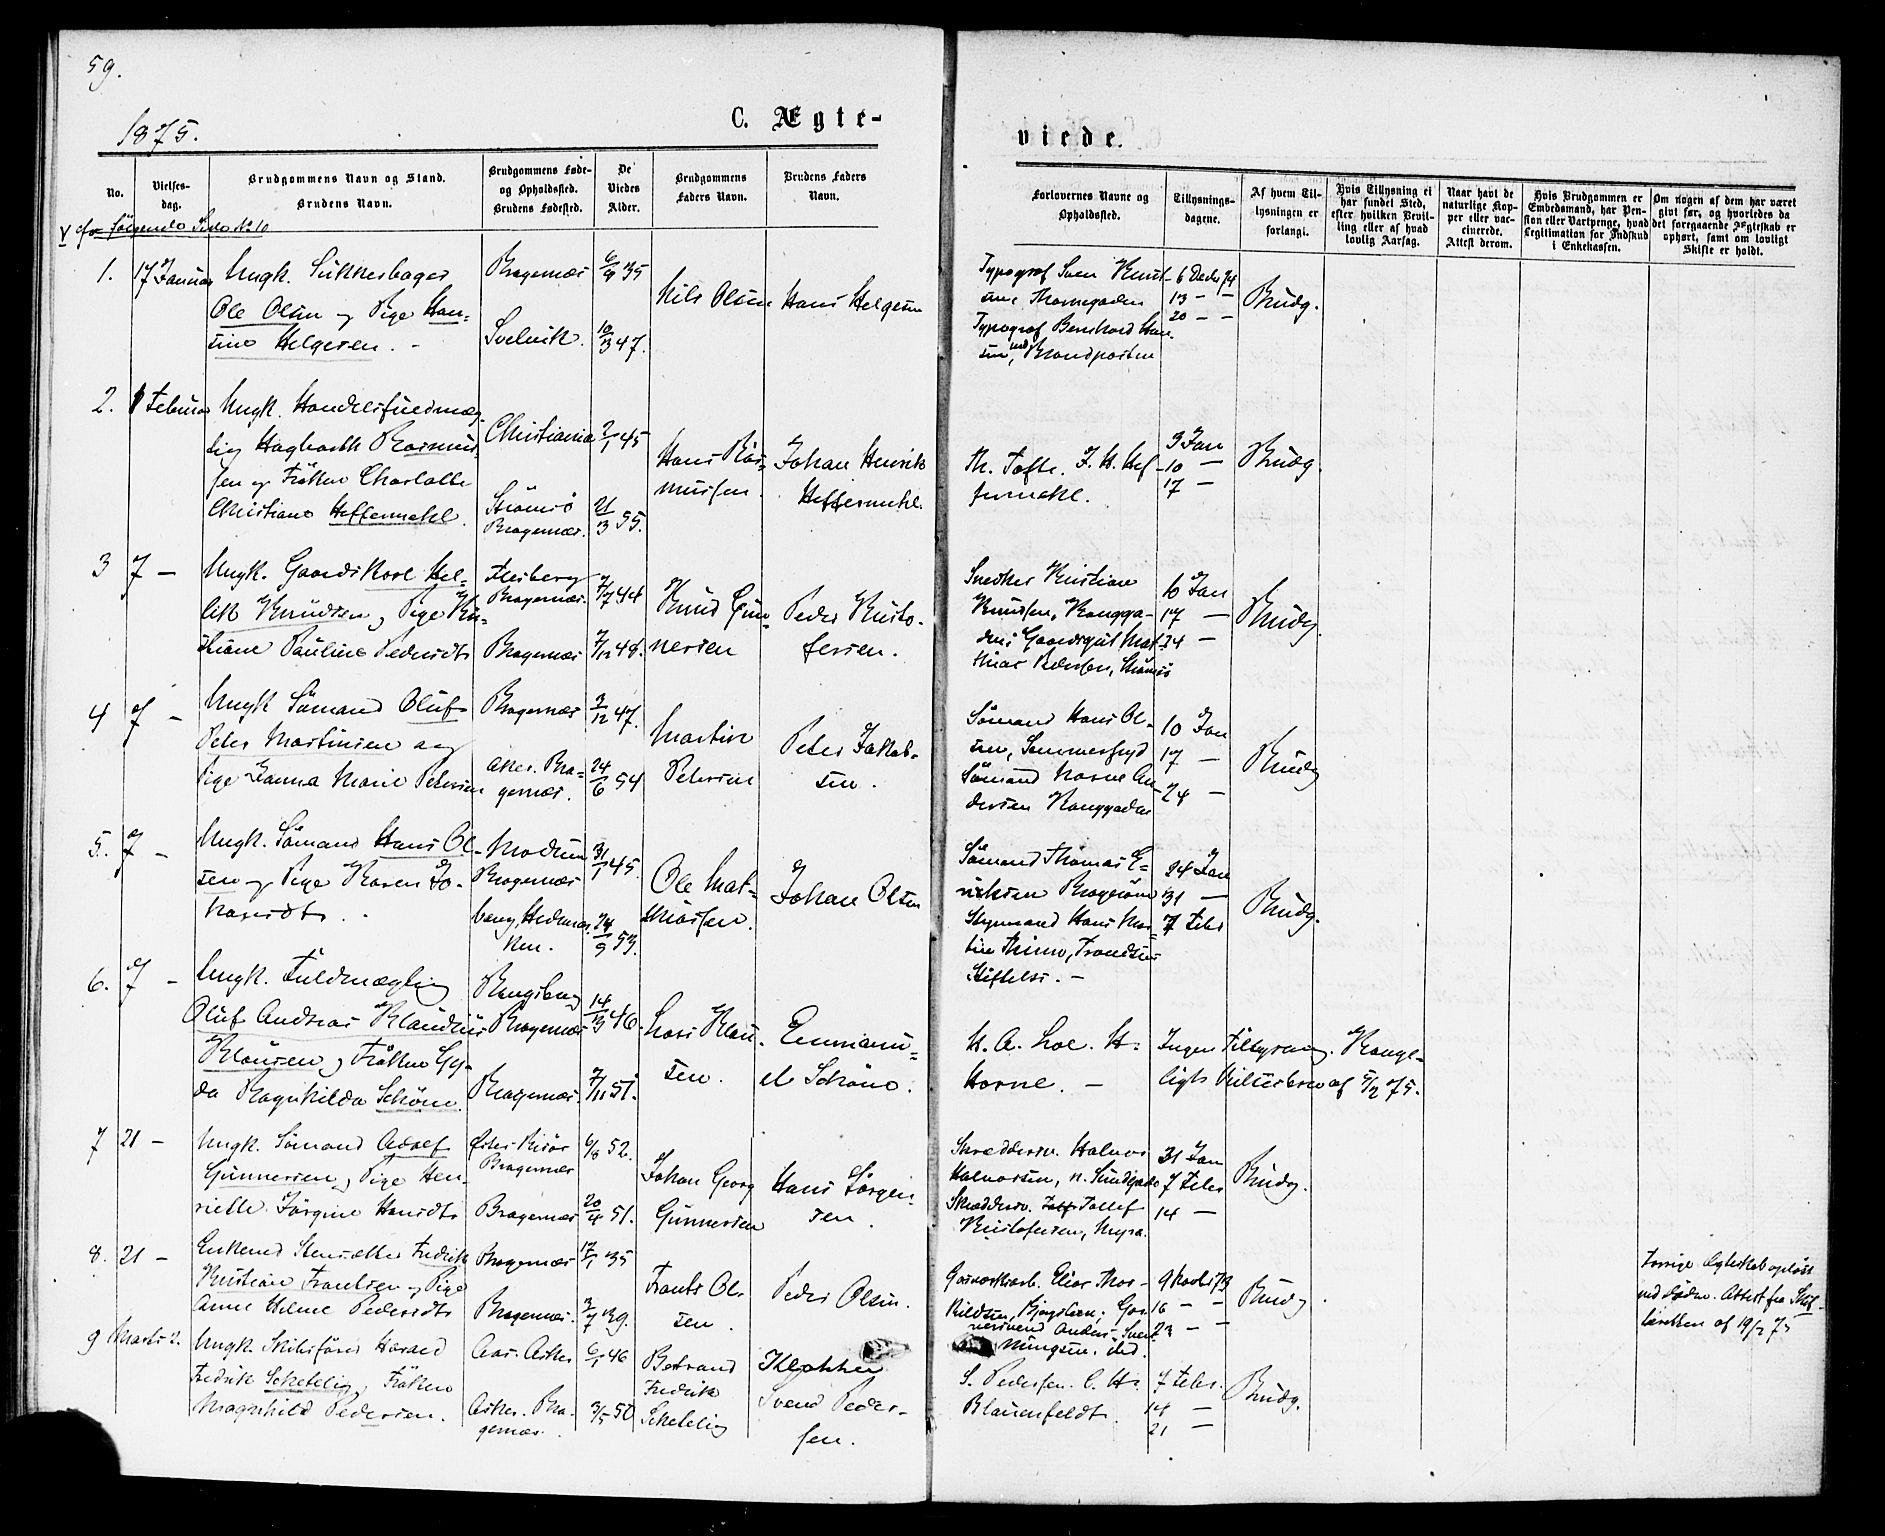 59.
1875.
C. Ægte-
viede.
No.
Vielses-
dag.
Brudgommens Navn og Stand.
Brudens Navn.
Brudgommens Føde-
og Opholdssted.
Brudens Fødested.
De
Viedes
Alder.
Brudgommens
Faders Navn.
Brudens Faders
Navn.
Forlovernes Navne og
Opholdssted.
Tillysnings-
dagene.
Af hvem Til-
lysningen er
forlangt.
Hvis Tillysning ei
har fundet Sted,
efter hvilken Bevil-
ling eller af hvad
lovlig Aarsag.
Naar havt de
naturlige Kop-
per eller vac-
cinerede.
Attest derom.
Hvis Brudgommen er
Embedsmand, har Pen-
sion eller Vartpenge, hvad
Legitimation for Indskud
i Enkekassen.
Om nogen af dem har været
givt før, og hvorledes da
det foregaaende Ægteskab er
ophørt, samt om lovligt
Skifte er holdt.
følgende Side No 10
1. 17 Januar
Ungk. Sukkerbager
Ole Olsen og Pige Han-
sine Helgesen. -
Bragernæs
Svelvik.
6/9 35
10/3 47.
Nils Olsen
Hans Helgesen
Typograf Sven Knut-
sen Thornegaden
Typograf Bernhard Han-
sen, Brandposten
6 Decbr 74
13 - -
20 - -
Brudg.
2. 1 Februar
Ungk. Handelsfuldmæg-
tig Hagbarth Rasmus-
sen og Frøken Charlotte
Christiane Heffermehl.
Christiania
Strømsø
Bragernæs.
2/1 45
21/3 55.
Hans Ras-
mussen.
Johan Henrik
Heffermehl.
Th. Tofte. J. H. Hef-
fermehl.
3 Jan
10 -
17 -
Brudg.
3 7 -
Ungk. Gaardskarl Hel-
lik Knudsen og Pige Kri-
stiane Pauline Pedersdtr
Flesberg
Bragernæs.
Bragernæs
7/7 44
7/12 48.
Knud Gun-
nersen
Peder Kristo-
fersen.
Snedker Kristian
Knutsen, Kongga-
den; Gaardsgut Mat-
thias Pedersen, Strømsø
10 Jan
17 -
24 -
Brudg.
4 7 -
Ungk Sømand Oluf
Peter Martinsen og
Pige Hanna Marie Petersen
Bragernæs
Asker. Bra-
gernæs.
3/12 47.
24/6 54
Martin
Petersen
Peter Jakob-
sen.
Sømand Hans Ol-
sen, Sommerfryd
Sømand Marne An-
dersen Konggaden
10 Jan
17 -
24 -
Brudg
5. 7 -
Ungk. Sømand Hans Ol-
sen og Pige Karen Jo-
hansdtr.
Modum
Bragernæs
Hedmar-
ken.
31/1 45.
53.
Ole Mat-
thiassen.
Johan Olsen
Sømand Thomas E-
riksen Bragerøen
Styrmand Hans Mar-
tin Thime, Trondsens
Stiftelse. -
24 Jan
31 -
7 Febr
Brudg.
6. 7 -
Ungk. Fuldmægtig
Oluf Andreas Klaudius
Klausen og Frøken Gy-
da Ragnhilda Schöne.
Kongsberg
Bragernæs
Bragernæs.
46.
7/11 51.
Lars Klau-
sen.
Emmanu-
el Schöne.
H. A. Loe. H.
Horne. -
Ingen Tillysning. Konge-
ligt Vielsesbrev af 5/2 75.
7 21 -
Ungk. Sømand Adolf
Gunnersen og Pige Hen-
riette Jørgine Hansdtr
Øster Risør
Bragernæs
Bragernæs
6/8 52.
20/4 51.
Johan Georg
Gunnersen
Hans Jørgen-
sen.
Skræddersv. Halvor
Halvorsen, n. Sundgade
Skræddersv. Tollef
Kristofersen, Myra.
31 Jan
7 Febr
14 -
Brudg.
8. 21 -
Enkemd Stensætter Fredrik
Kristian Frantsen og Pige
Anne Helene Pedersdtr
Bragernæs
Bragernæs.
17/1 35
3/7 39.
Frants Ol-
sen.
Peder Olsen.
Garverarb. Elias Thor-
kildsen, Bjørgsteen; Gar-
versvend Anders Svend-
Mungsen, ibd.
16 - -
23 - -
Brudg
Forrige Ægteskab opløst
ved Døden. Attest fra Skif-
teretten af 19/2 75
9 Marts 2.
Ungk. Skibsfører Harald
Fredrik Schetelig, Frøken
Magnhild Pedersen.
Aas. Asker
Asker. Bra-
gernæs.
6/1 46
3/5 50
Betrand
Fredrik
Schetelig
Klokker
Svend Peder-
sen.
S. Pedersen. C. H.
Blauenfeldt.
7 Febr.
14 -
21 -
Brudg.